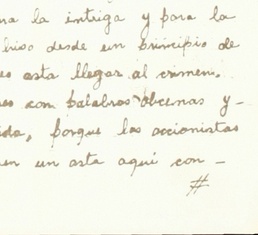 na la intriga y para la
hiso desde un principio de
es asta llegar al crimen.
es con palabras obcenas y-
ida, porque los accionistas
en un asta aqui con -
#